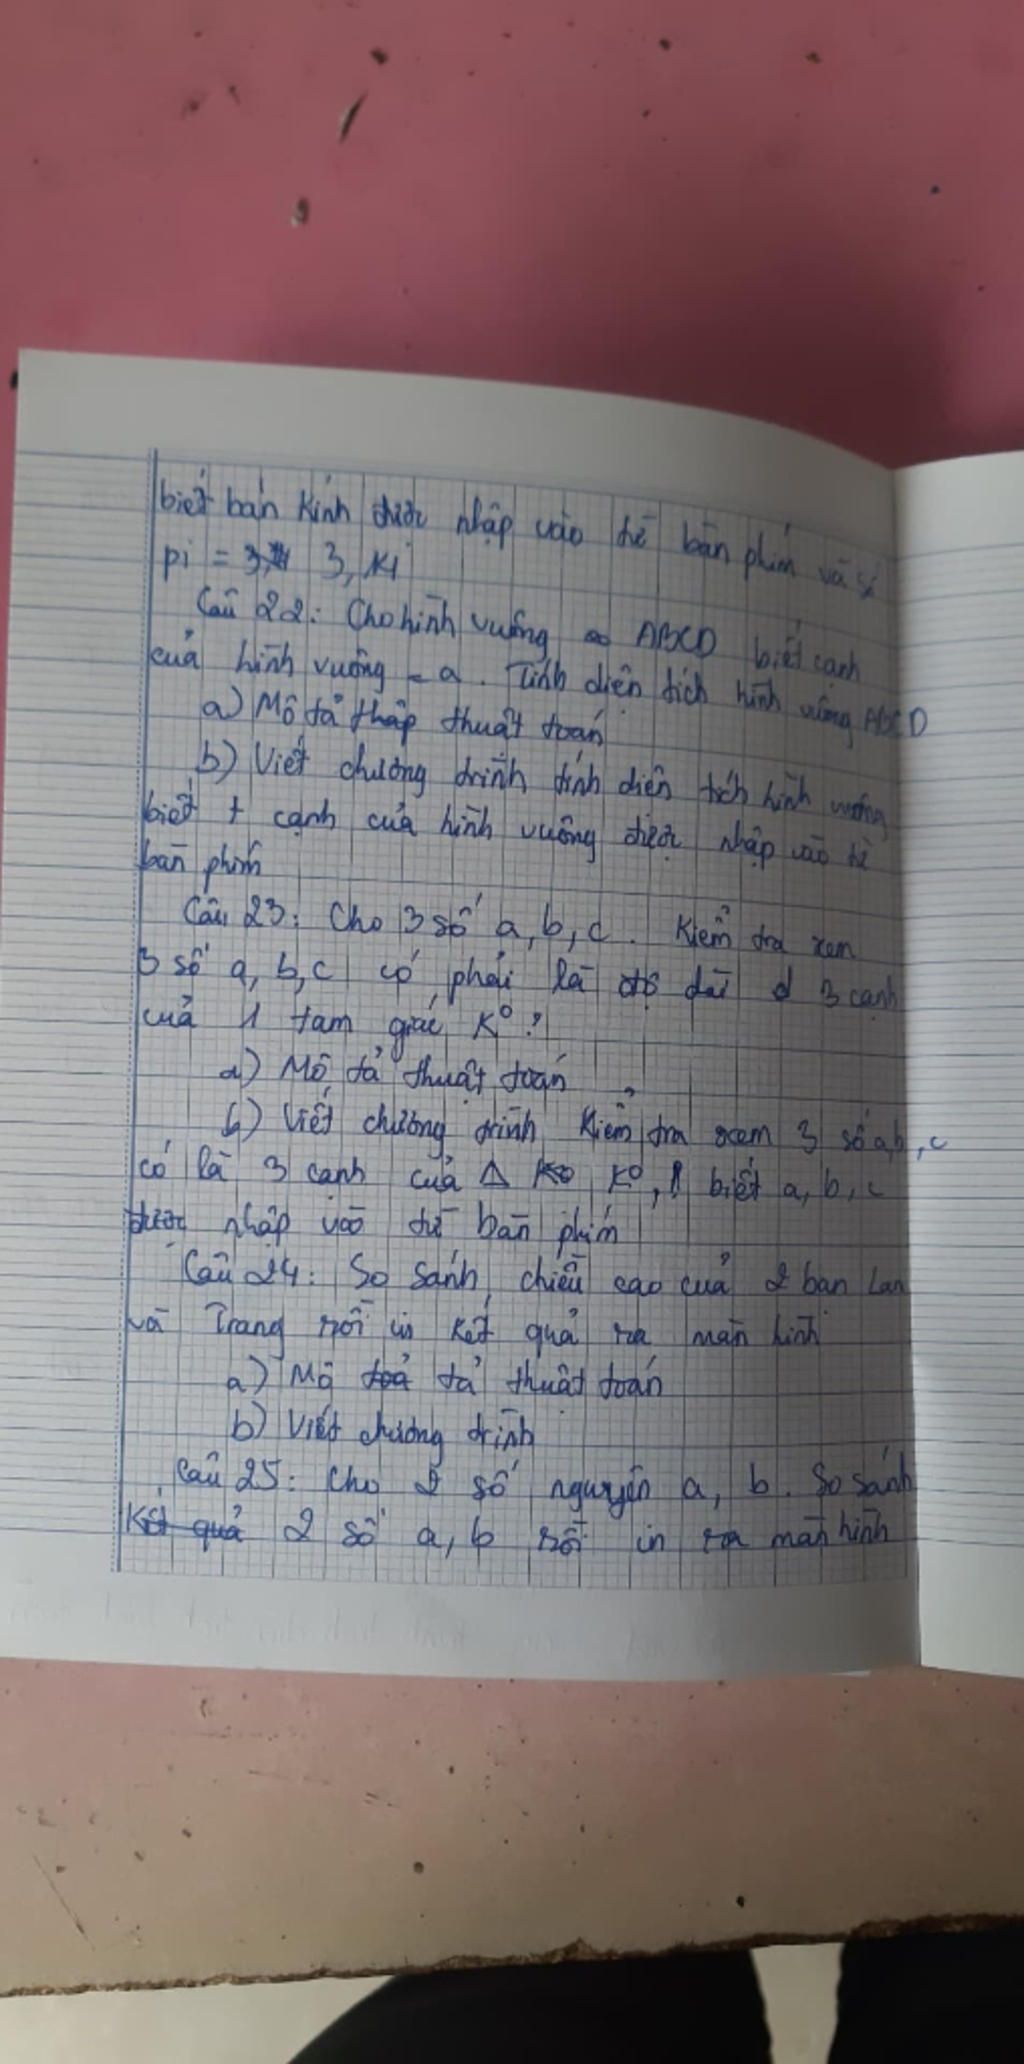 biết bán kính được nhập vào từ bàn phím và số
pi = 3,14
Câu 22: Cho hình vuông ABCD biết cạnh
của hình vuông = a. Tính diện tích hình vuông ABCD
a) Mô tả thuật toán
b) Viết chương trình tính diện tích hình vuông
biết cạnh của hình vuông được nhập vào từ
bàn phím
Câu 23: Cho 3 số a, b, c. Kiểm tra xem
3 số a, b, c có phải là độ dài 3 cạnh
của 1 tam giác K°?
a) Mô tả thuật toán
b) Viết chương trình kiểm tra xem 3 số a, b, c
có là 3 cạnh của Δ K°, biết a, b, c
được nhập vào từ bàn phím
Câu 24: So sánh chiều cao của 2 bạn Lan
và Trang rồi in kết quả ra màn hình
a) Mô tả thuật toán
b) Viết chương trình
Câu 25: Cho 2 số nguyên a, b. So sánh
2 số a, b rồi in ra màn hình